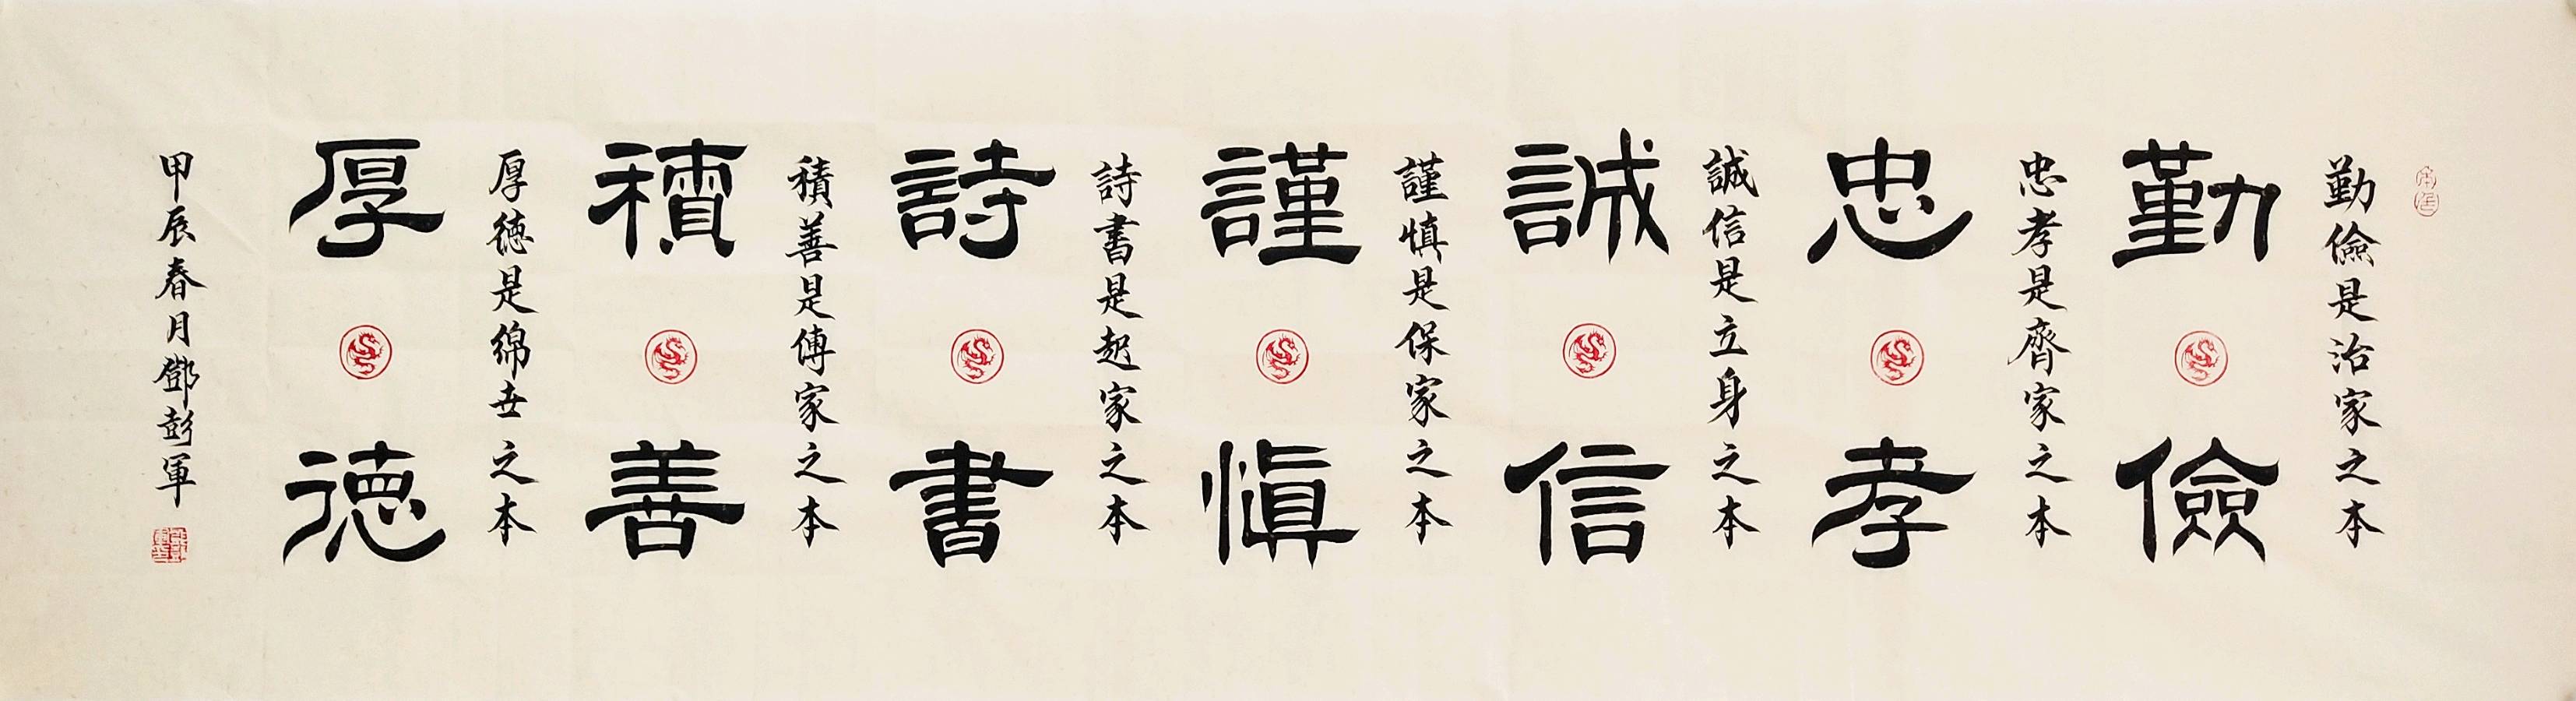 勤儉是治家之本
勤儉
忠孝是齊家之本
忠孝
誠信是立身之本
誠信
謹慎是保家之本
謹慎
詩書是起家之本
詩書
積善是傳家之本
積善
厚徳是綿世之本
厚徳
甲辰春月鄧彭軍